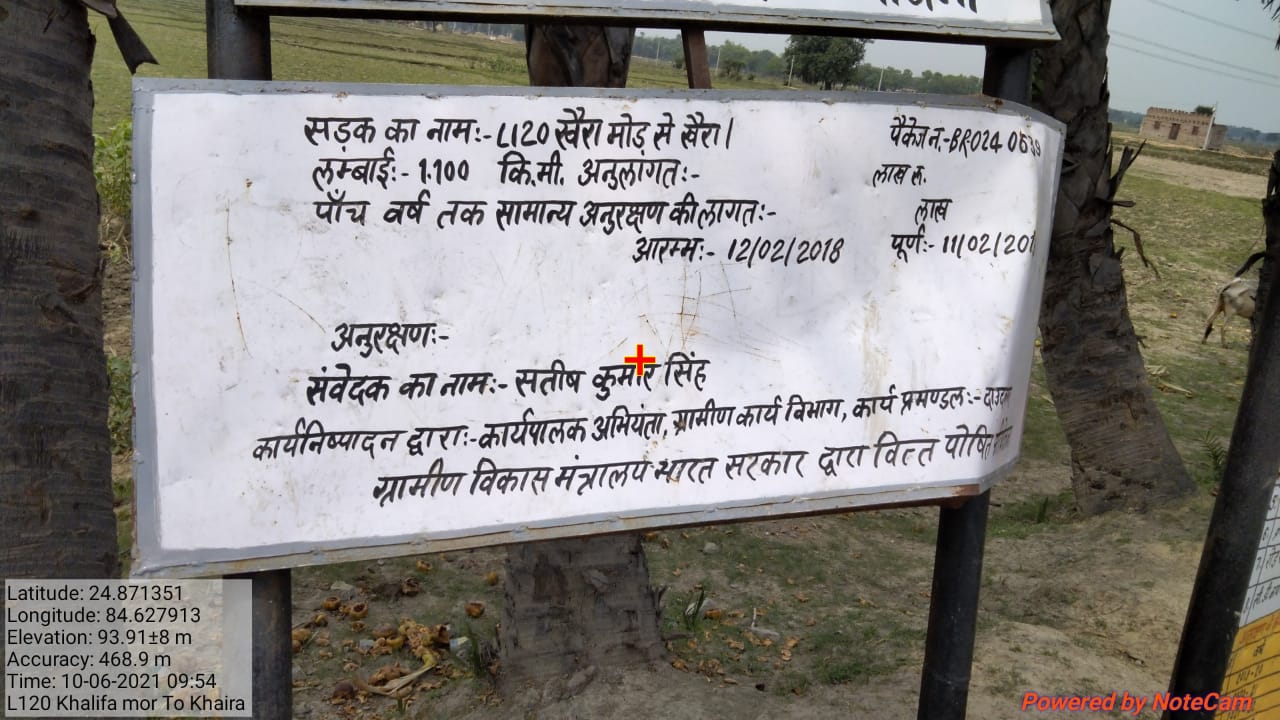 सड़क का नामः- L120 खैरा मोड़ से खैरा। पैकेज न.-BR024
लम्बाईः- 1.100 कि.मी. अनुलागतः- लाख रू.
पाँच वर्ष तक सामान्य अनुरक्षण की लागतः- लाख
आरम्भः- 12/02/2018 पूर्णः- 11/02/201
अनुरक्षणः-
संवेदक का नामः- सतीष कुमार सिंह
कार्यनिष्पादन द्वाराः- कार्यपालक अभियंता, ग्रामीण कार्य विभाग, कार्य प्रमण्डलः-
ग्रामीण विकास मंत्रालय भारत सरकार द्वारा वित्त पोषित
Latitude: 24.871351
Longitude: 84.627913
Elevation: 93.91±8 m
Accuracy: 468.9 m
Time: 10-06-2021 09:54
L120 Khalifa mor To Khaira
Powered by NoteCam